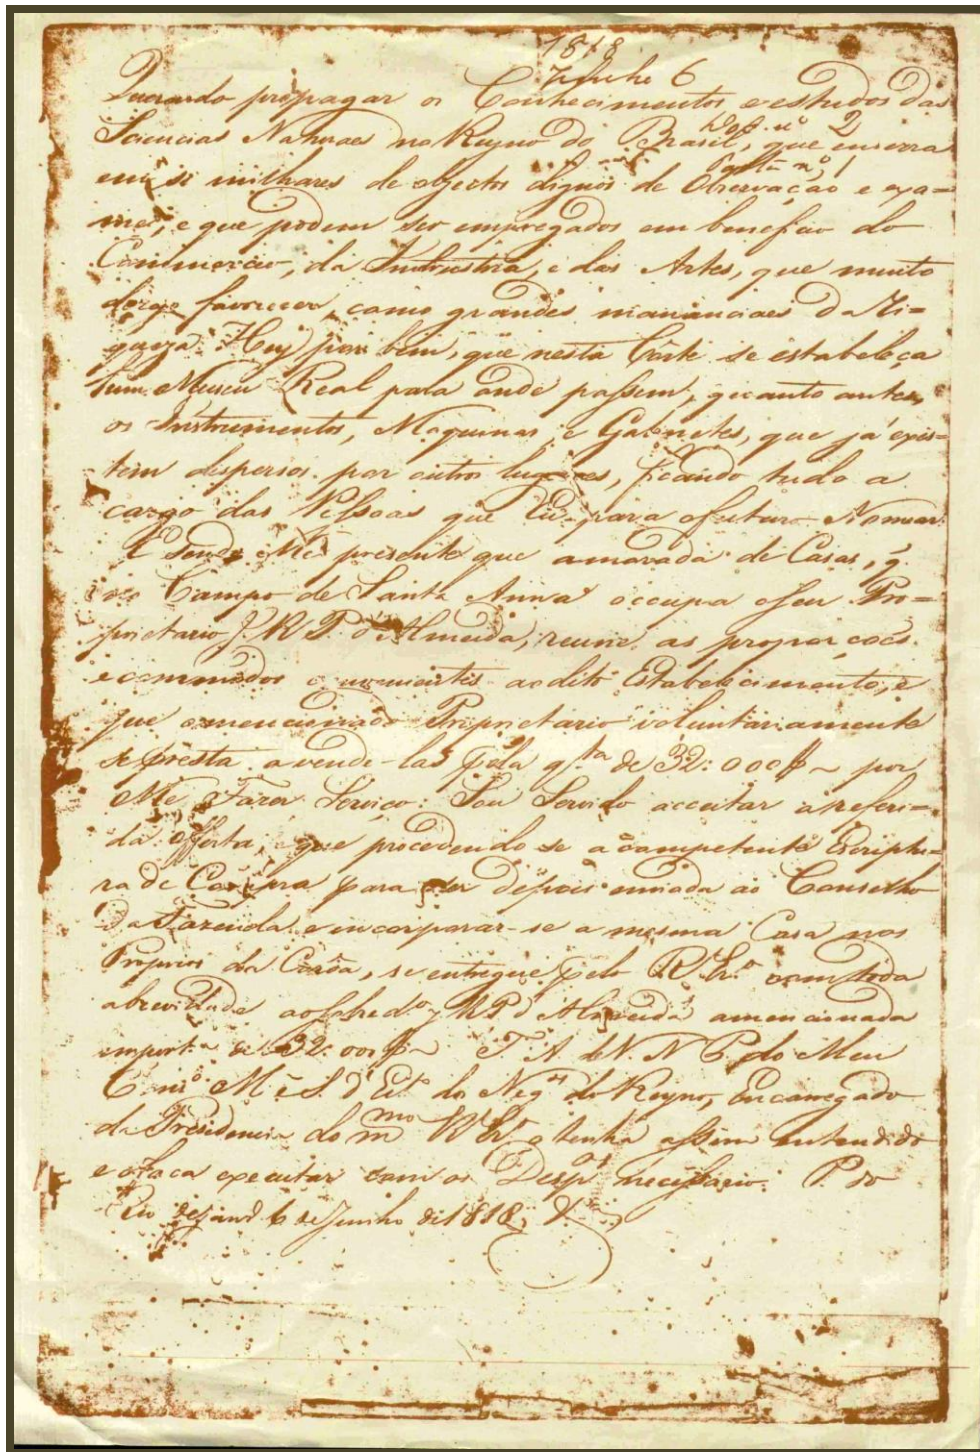 1818
Junho 6
Querendo propagar os Conhecimentos e estudos das
Doc. nº 2
Sciencias Naturaes no Reyno do Brasil, que encerra
Pasta nº 1
em si milhares de objectos dignos de Observação e exa=
me, e que podem ser empregados em beneficio do
Commercio, da Industria, e das Artes, que muito
dezejo favorecer, como grandes mananciaes da Ri=
queza: Hey por bem, que nesta Côrte se estabeleça
hum Museu Real para onde passem, quanto antes,
os Instrumentos, Maquinas, e Gabinetes, que já exis=
tem dispersos por outros lugares, ficando tudo a
cargo das Pessoas que Eu para o futuro Nomear.
E sendo-Me presente que a morada de Casas, q.
no Campo de Santa Anna occupa o seu Pro=
prietario J. R. P. d'Almeida, reune as proporções
e commodos convenientes ao dito Estabelecimento, e
que o mencionado Proprietario voluntariamente
se presta a vende-las pela q.ta de 32:000$ por
Me Fazer Serviço: Sou Servido acceitar a referi=
da offerta, e que procedendo se a competente Escriptu=
ra de Compra para ser depois enviada ao Conselho
da Fazenda e incorporar-se a mesma Casa nos
Proprios da Corôa, se entregue pelo R. Er.º com toda
a brevidade ao sobred.º J. R. P. d'Almeida a mencionada
import.a de 32:000$ T. A. de V. N. P. do Meu
C. M. e S. d'Est.º do Neg.os do Reyno, Encarregado
da Presidencia do m.mo R. Er.º o tenha assim entendido
e o faça executar com os Desp.os necessarios. P. do
Rio de Jan.º 6 de Junho de 1818